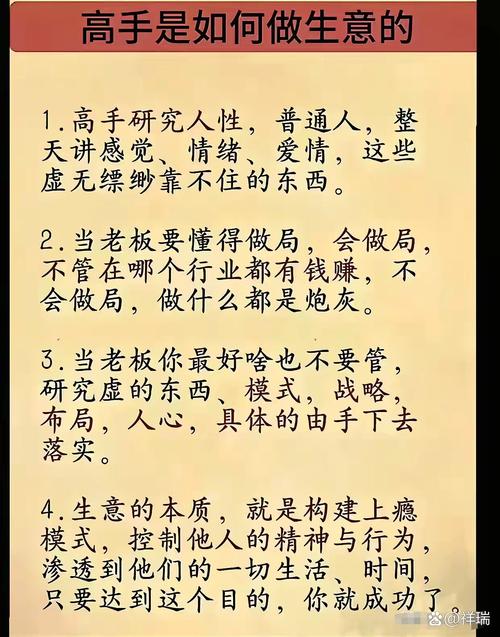 高手是如何做生意的
1.高手研究人性，普通人，整
天讲感觉、情绪、爱情，这些
虚无缥缈靠不住的东西。
2.当老板要懂得做局，会做局，
不管在哪个行业都有钱赚，不
会做局，做什么都是炮灰。
3.当老板你最好啥也不要管，
研究虚的东西、模式，战略，
布局，人心，具体的由手下去
落实。
4.生意的本质，就是构建上瘾
模式，控制他人的精神与行为，
渗透到他们的一切生活、时间，
只要达到这个目的，你就成功了。
@祥瑞